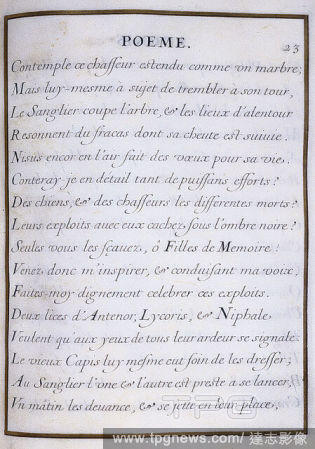 POEME.
23
Contemple ce chasseur estendu comme vn marbre;
Mais luy-mesme à sujet de trembler à son tour,
Le Sanglier coupe l'arbre, & les lieux d'alentour
Resonnent du fracas dont sa cheute est suiuie.
Nisus encor en l'air fait des vœux pour sa vie.
Conteray-je en detail tant de puissans efforts?
Des chiens, & des chasseurs les differentes morts?
Leurs exploits auec eux cachez sous l'ombre noire?
Seules vous les sçauez, ô Filles de Memoire!
Venez donc m'inspirer, & conduisant ma voix,
Faites-moy dignement celebrer ces exploits.
Deux lices d'Antenor, Lycoris, & Niphale,
Veulent qu'aux yeux de tous leur ardeur se signale.
Le vieux Capis luy mesme eut soin de les dresser;
Au Sanglier l'vne & l'autre est preste à se lancer,
Vn mâtin les deuance, & se jette en leur place;
www.tpgnews.com/達志影像